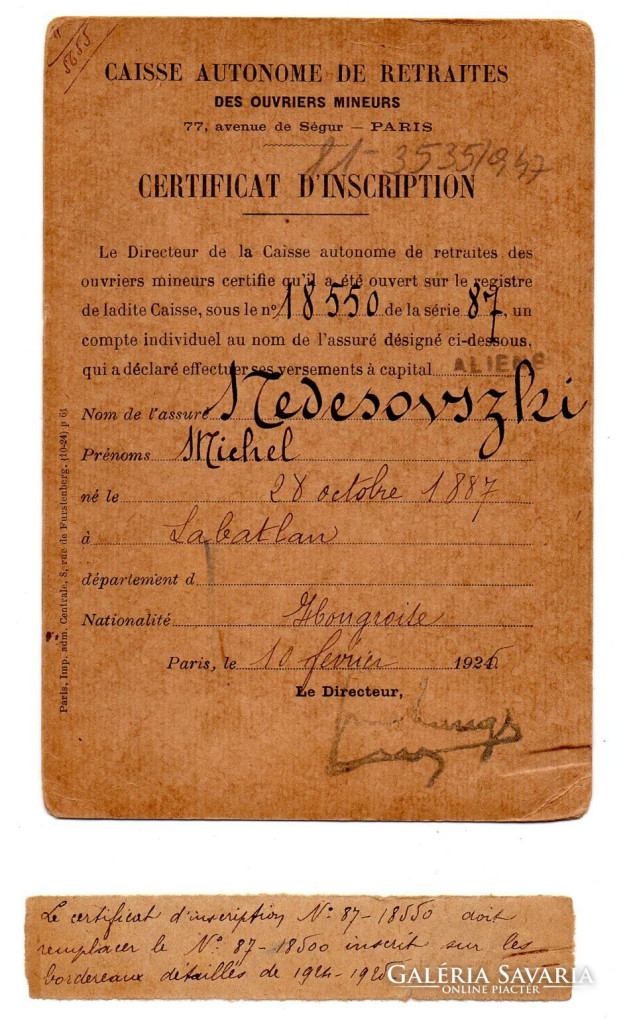 5655
CAISSE AUTONOME DE RETRAITES
DES OUVRIERS MINEURS
77, avenue de Ségur — PARIS
3535/947
CERTIFICAT D'INSCRIPTION
Le Directeur de la Caisse autonome de retraites des
ouvriers mineurs certifie qu'il a été ouvert sur le registre
de ladite Caisse, sous le nº 18550 de la série 87, un
compte individuel au nom de l'assuré désigné ci-dessous,
qui a déclaré effectuer ses versements à capital ALIENÉ
Nom de l'assuré Medesovszki
Prénoms Michel
né le 28 octobre 1887
à Labatlan
département d
Nationalité Hongroise
Paris, le 10 février 192
Le Directeur,
Paris, Imp. adm. Centrale, 8, rue de Furstenberg. (10-24) p 61
Le certificat d'inscription Nº 87-18550 doit
remplacer le Nº 87-18500 inscrit sur les
bordereaux détaillés de 1924-1925
GALÉRIA SAVARIA
ONLINE PIACTÉR